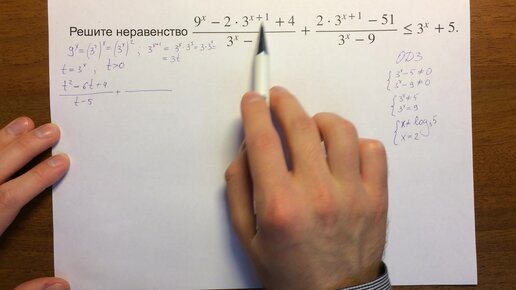 Решите неравенство (9^x − 2 · 3^{x+1} + 4)/(3^x −) + (2 · 3^{x+1} − 51)/(3^x − 9) ≤ 3^x + 5.
9^x = (3^2)^x = (3^x)^2, 3^{x+1} = 3^x · 3^1 = 3 · 3^x =
= 3t
t = 3^x ; t > 0
(t^2 − 6t + 4)/(t − 5) +
ОДЗ
{ 3^x − 5 ≠ 0
3^x − 9 ≠ 0
{ 3^x ≠ 5
3^x = 9
{ x ≠ log_3 5
x = 2